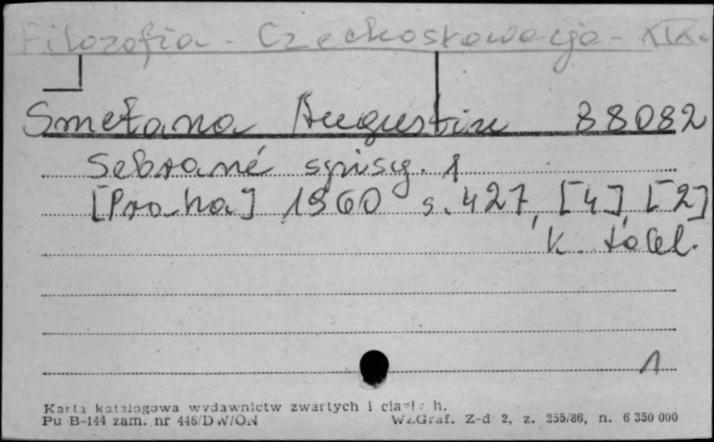 Filozofia - Czechosłowacja - XIX w.
Smetana Augustin 88082
Sebrané spisy. 1
[Praha] 1960 s. 427, [4], [2]
k. tabl.
1
Karta katalogowa wydawnictw zwartych i ciągłych.
Pu B-144 zam. nr 446/DW/ON WZGraf. Z-d 2, z. 255/86, n. 6 350 000